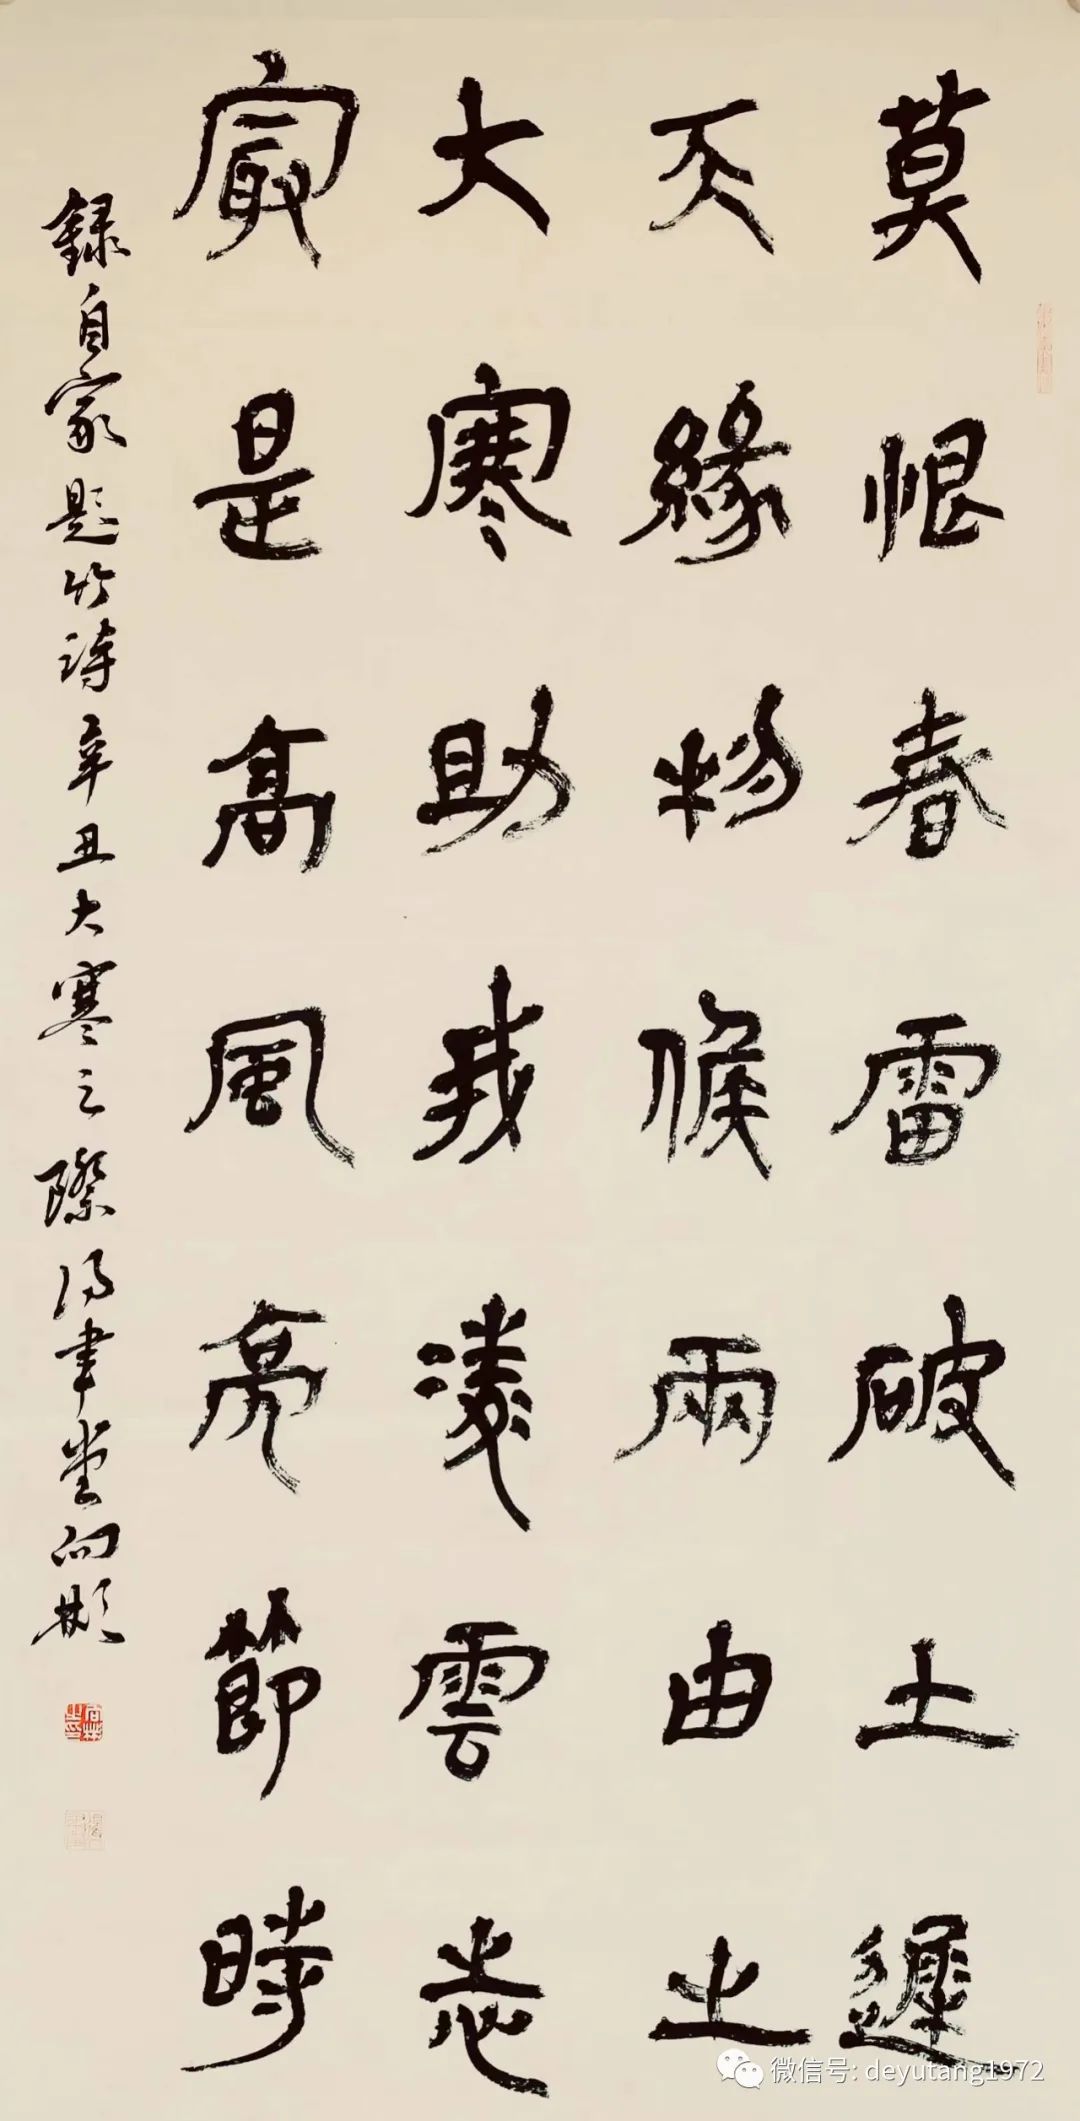 莫恨春雷破土遲
不緣物候兩由之
大寒助我凌雲志
寂是高風亮節時
録自家題竹詩辛丑大寒之際得聿堂向
微信号: deyutang1972